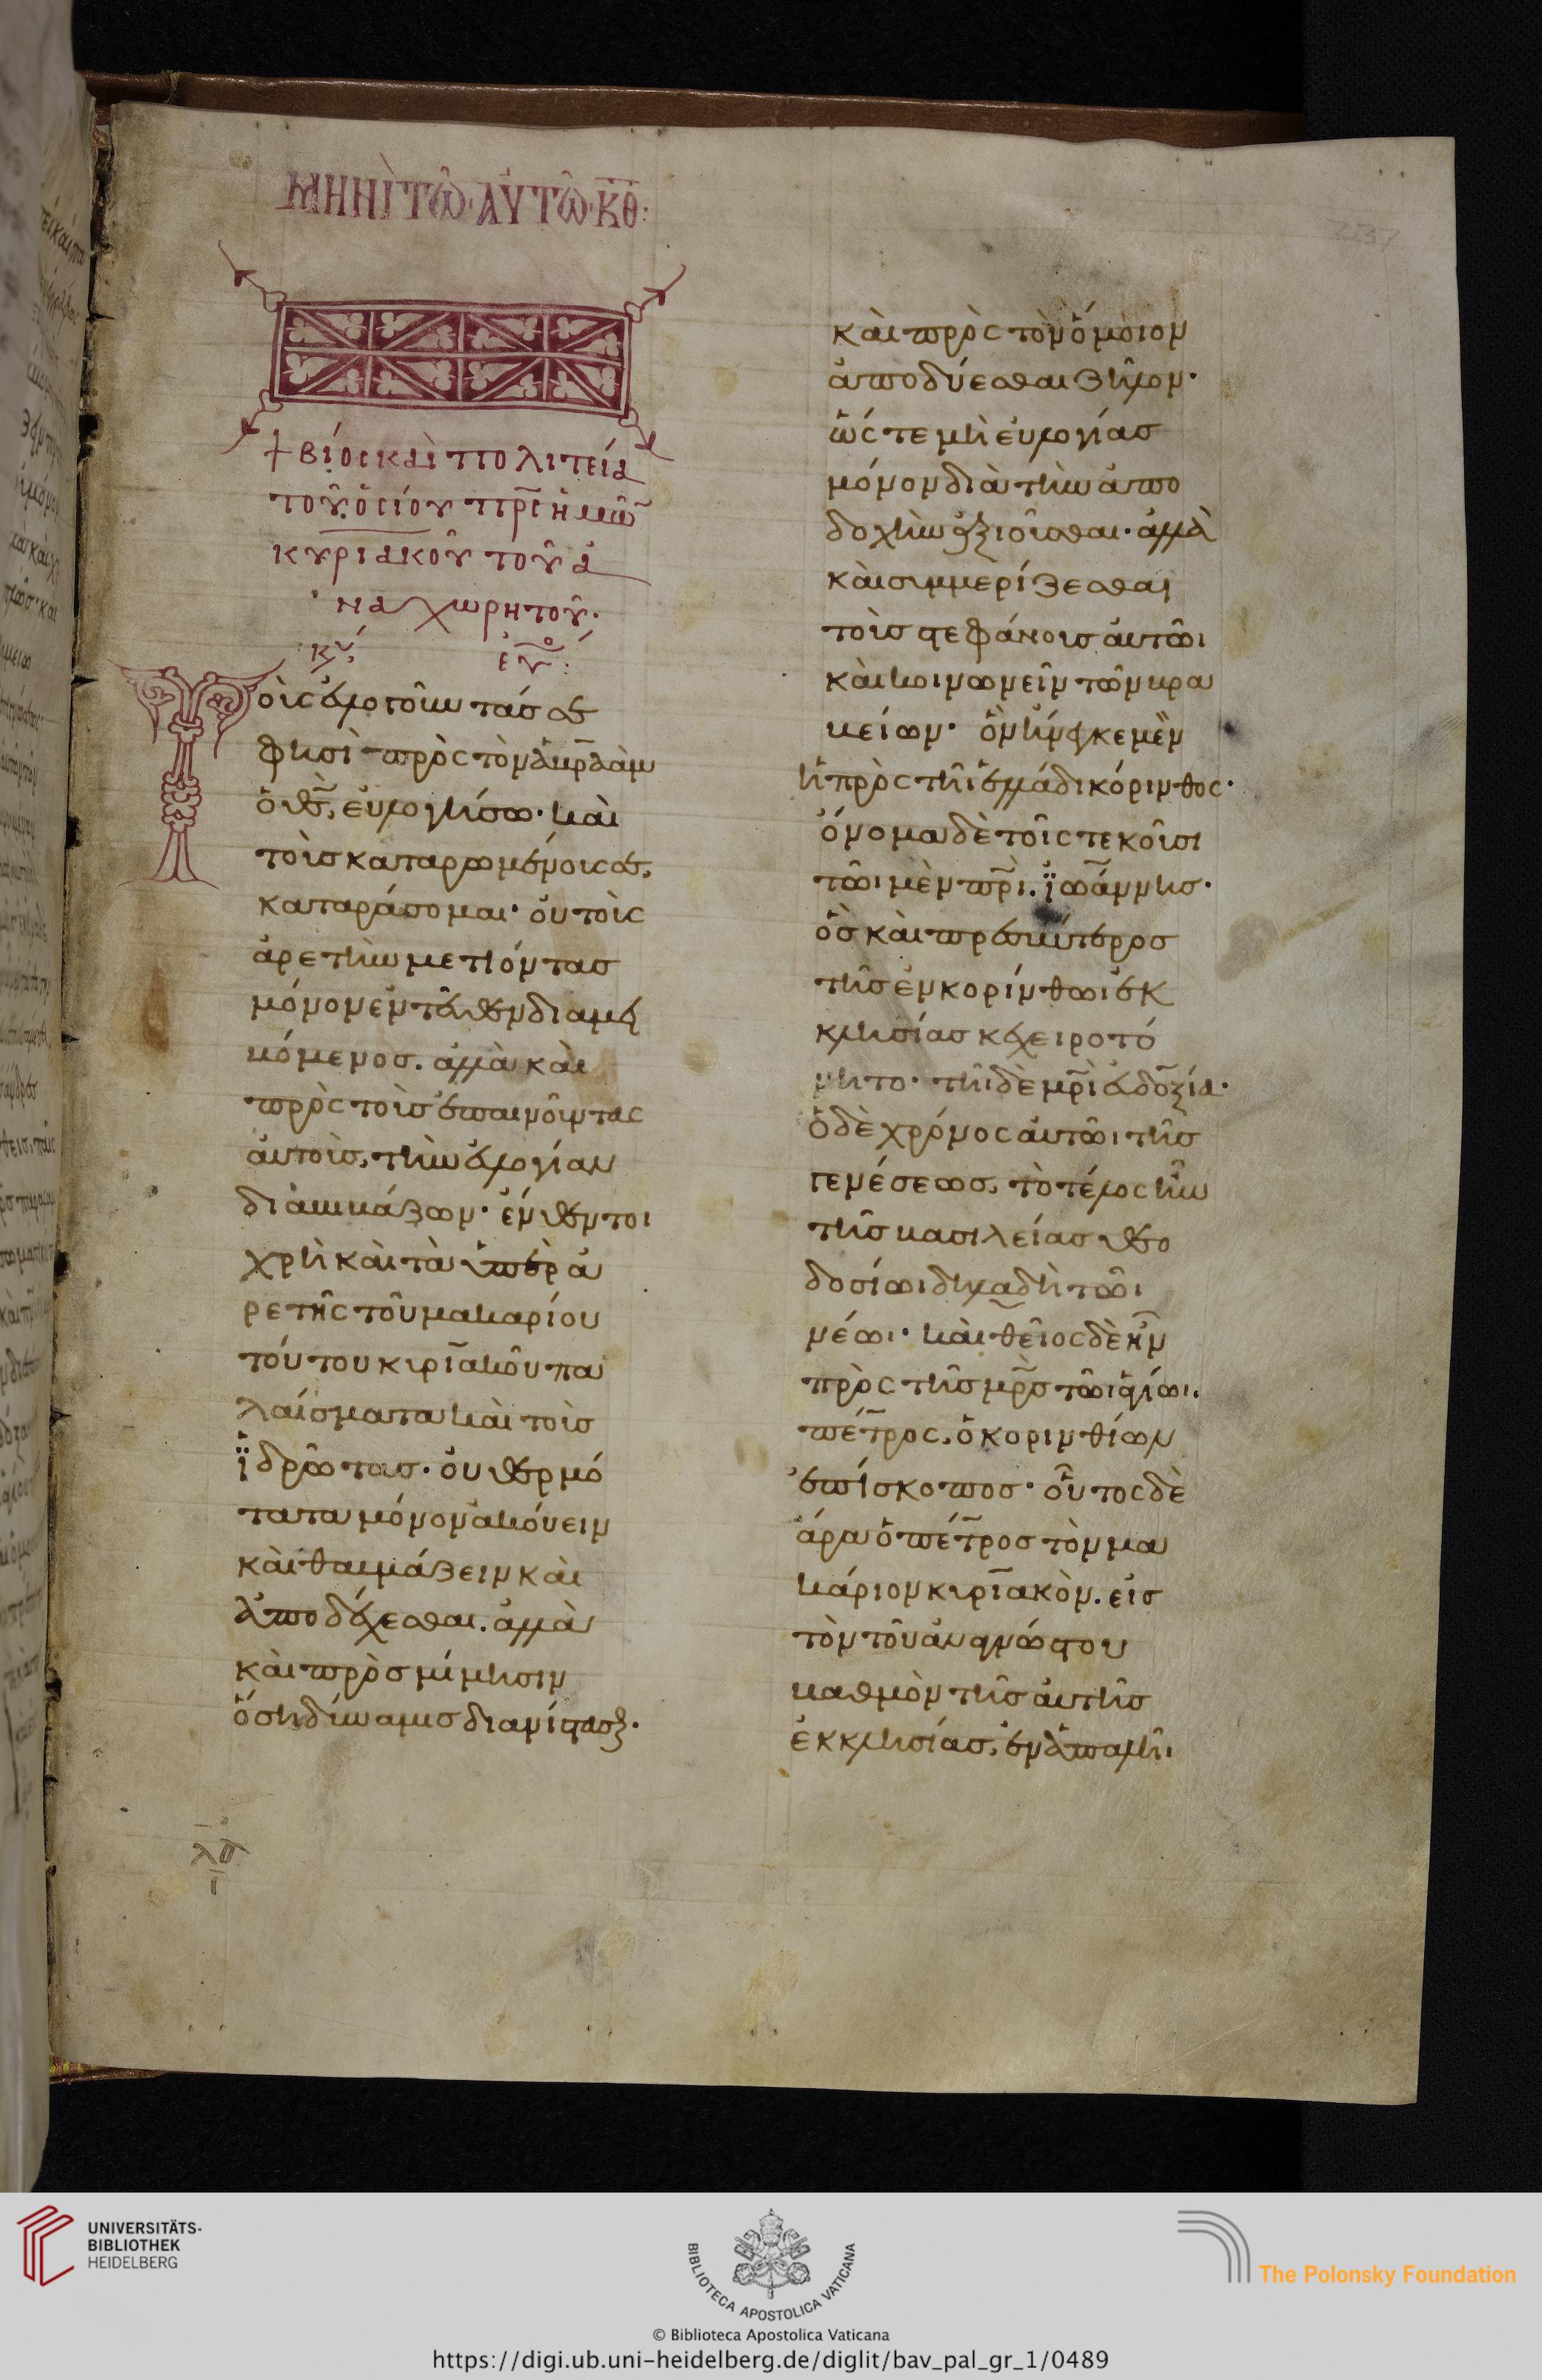 ΜΗΝῚ ΤΩ͂· ΑΥ̓ΤΩ͂· ΚΘ:
+ βίος καὶ πολιτεία
τοῦ ὁσίου πρς ἡμῶ
κυριακοῦ τοῦ ἀ
ναχωρητοῦ.
Τοὺς εὐλογοῦντάς σε
φησὶ πρὸς τὸν ἀβρααμ
ὁ θς, εὐλογήσω· καὶ
τοὺς καταρωμένους σε,
καταράσομαι· οὐ τοὺς
ἀρετὴν μετιόντας
μόνον ἐντεῦθεν διαμει
βόμενος. ἀλλὰ καὶ
πρὸς τοὺς ἐπαινοῦντας
αὐτοὺς, τὴν εὐλογίαν
διαβιβάζων· ἐνθέντοι
χρὴ καὶ τὰ ὑπὲρ ἀ
ρετῆς τοῦ μακαρίου
τούτου κυριακοῦ πα
λαίσματα καὶ τοὺς
ἱδρῶτας· οὐ θερμό
τατα μόνον ἀκούειν
καὶ θαυμάζειν καὶ
ἀποδέχεσθαι. ἀλλὰ
καὶ πρὸς μίμησιν
ὅση δύναμις διανίστασθαι·
καὶ πρὸς τὸν ὅμοιον
ἀποδύεσθαι ζῆλον·
ὥς τε μὴ εὐλογίας
μόνον διὰ τὴν ἀπο
δοχὴν ἀξιοῦσθαι· ἀλλὰ
καὶ συμμερίζεσθαι
τοὺς στεφάνους αὐτῶι
καὶ κοινωνεῖν τῶν βρα
βείων· ὃν ἤνεγκε μὲν
ἡ πρὸς τῆι ἑλλάδι κόρινθος·
ὄνομα δὲ τοῖς τεκοῦσι
τῶι μὲν πρὶ. ϊωάννης·
ὃς καὶ πρεσβύτερος
τῆς ἐν κορίνθωι ἐκ
κλησίας κεχειροτό
νητο· τῆι δὲ μρὶ εὐδοξία·
ὁ δὲ χρόνος αὐτῶι τῆς
γενέσεως, τὸ τέλος ἦν
τῆς βασιλείας θεο
δοσίωι δηλαδὴ τῶι
νέωι· καὶ θεῖος δὲ ἦν
πρὸς τῆς μρς τῶι ἁγίωι,
πέτρος, ὁ κορινθίων
ἐπίσκοπος· οὗτος δὲ
ἄρα ὁ πέτρος τὸν μα
κάριον κυριακὸν. εἰς
τὸν τοῦ ἀναγνώστου
βαθμὸν τῆς αὐτῆς
ἐκκλησίας, ἐν ἁπαλῆι
λδ
UNIVERSITÄTS-
BIBLIOTHEK
HEIDELBERG
BIBLIOTECA APOSTOLICA VATICANA
The Polonsky Foundation
© Biblioteca Apostolica Vaticana
https://digi.ub.uni-heidelberg.de/diglit/bav_pal_gr_1/0489